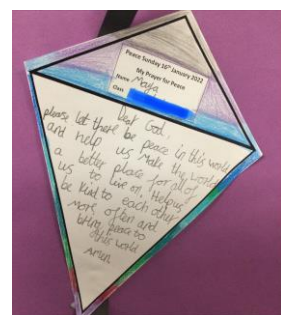 Peace Sunday 16th January 2022
My Prayer for Peace
Name Maya
Class
Dear God,
please let there be peace in this world
and help us make the world
a better place for all of
us to live on. Help us
be kind to each other
more often and
bring peace to
this world
Amen